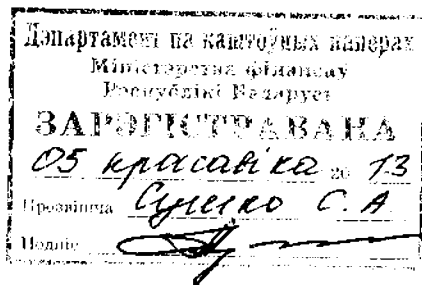 Дэпартамент па каштоўных паперах
Міністэрства фінансаў
Рэспублікі Беларусь
ЗАРЭГІСТРАВАНА
05 красавіка 20 13
Прозвішча С. А
Подпіс